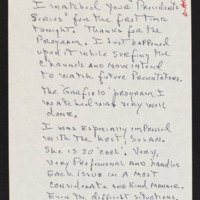 I watched your Presidents
Series' for the first time
tonight. Thanks for the
Program. I just happened
upon it while surfing the
channels and now intend
to watch future presentations.
The 'Garfield' program I
watched was very well
done.
I was especially impressed
with the host, Susan.
She is so 'cool'. Very,
very professional and handles
each issue in a most
considerate and kind manner.
Even the difficult situations.